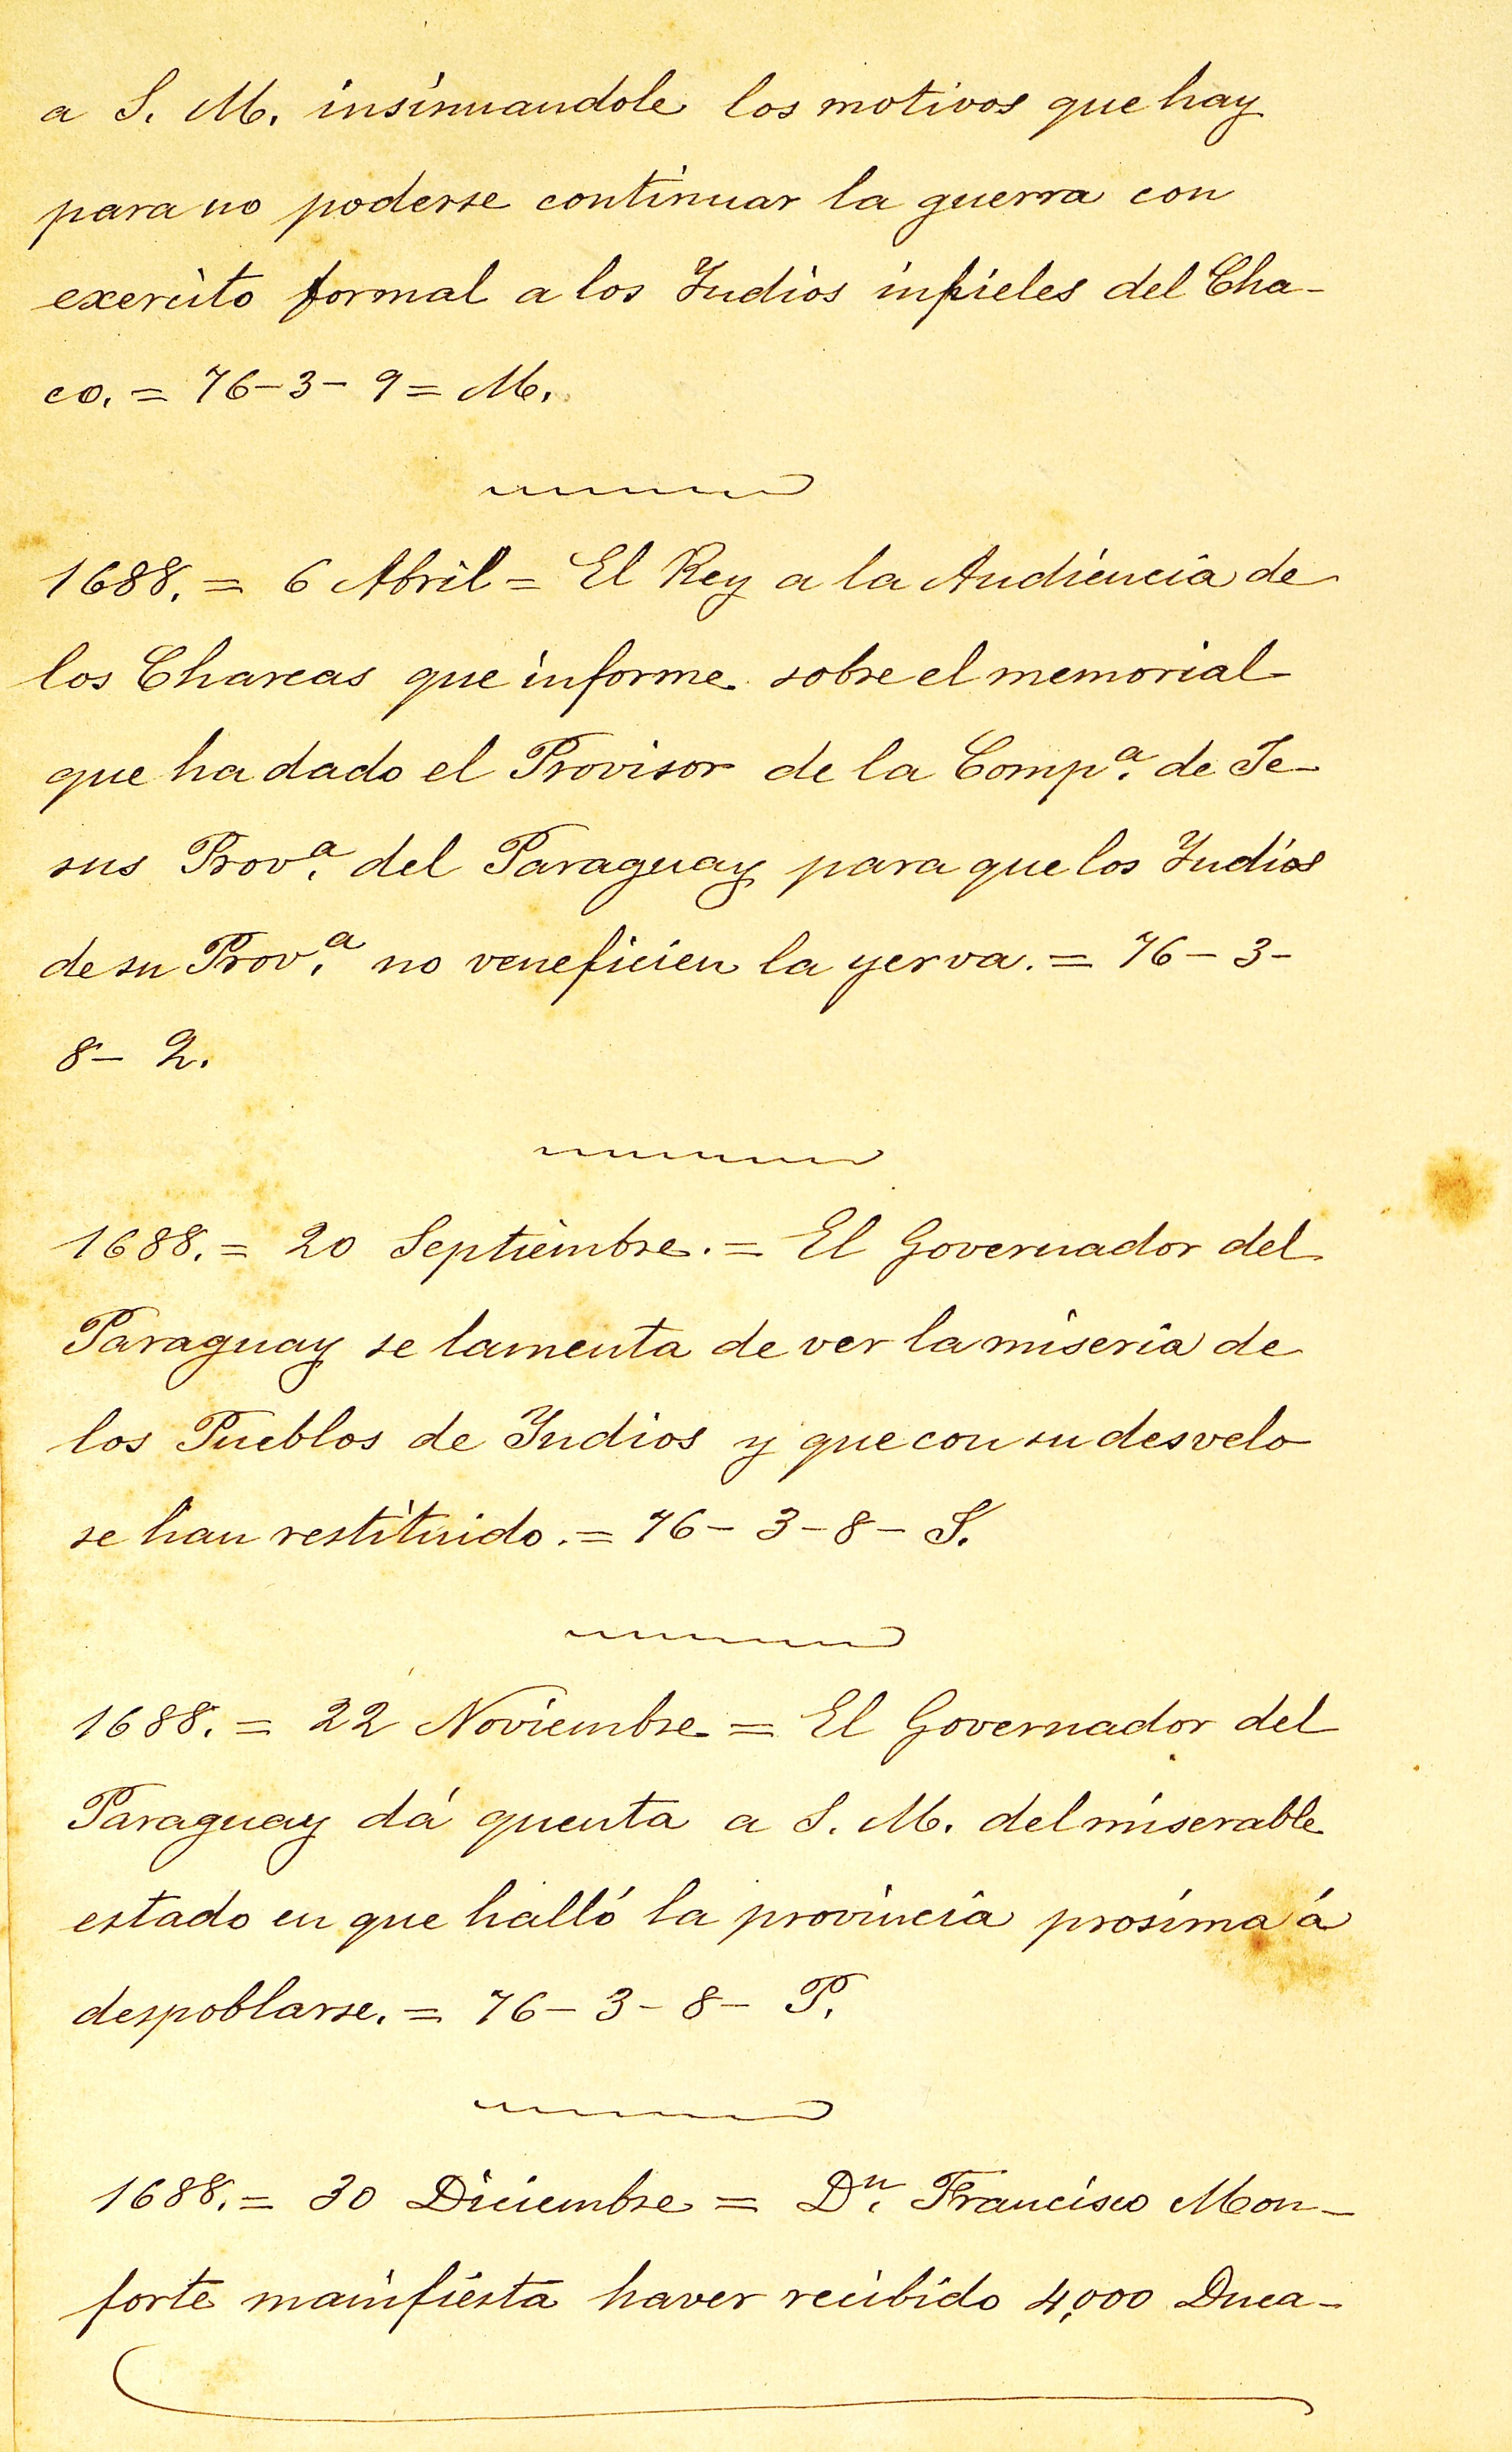 a S. M. insinuandole los motivos que hay
para no poderse continuar la guerra con
exercito formal a los Yndios infieles del Cha-
co. = 76-3-9 = M.
1688. = 6 Abril = El Rey a la Audiencia de
los Charcas que informe sobre el memorial
que ha dado el Provisor de la Comp.ª de Je-
sus Prov.ª del Paraguay para que los Yndios
de su Prov.ª no veneficien la yerva. = 76-3-
8-2.
1688. = 20 Septiembre. = El Governador del
Paraguay se lamenta de ver la miseria de
los Pueblos de Yndios y que con su desvelo
se han restituido. = 76-3-8-S.
1688. = 22 Noviembre = El Governador del
Paraguay dá quenta a S. M. del miserable
estado en que halló la provincia prosima á
despoblarse. = 76-3-8-P.
1688. = 30 Diciembre = D.n Francisco Mon-
forte mainfiesta haver recibido 4,000 Duca-